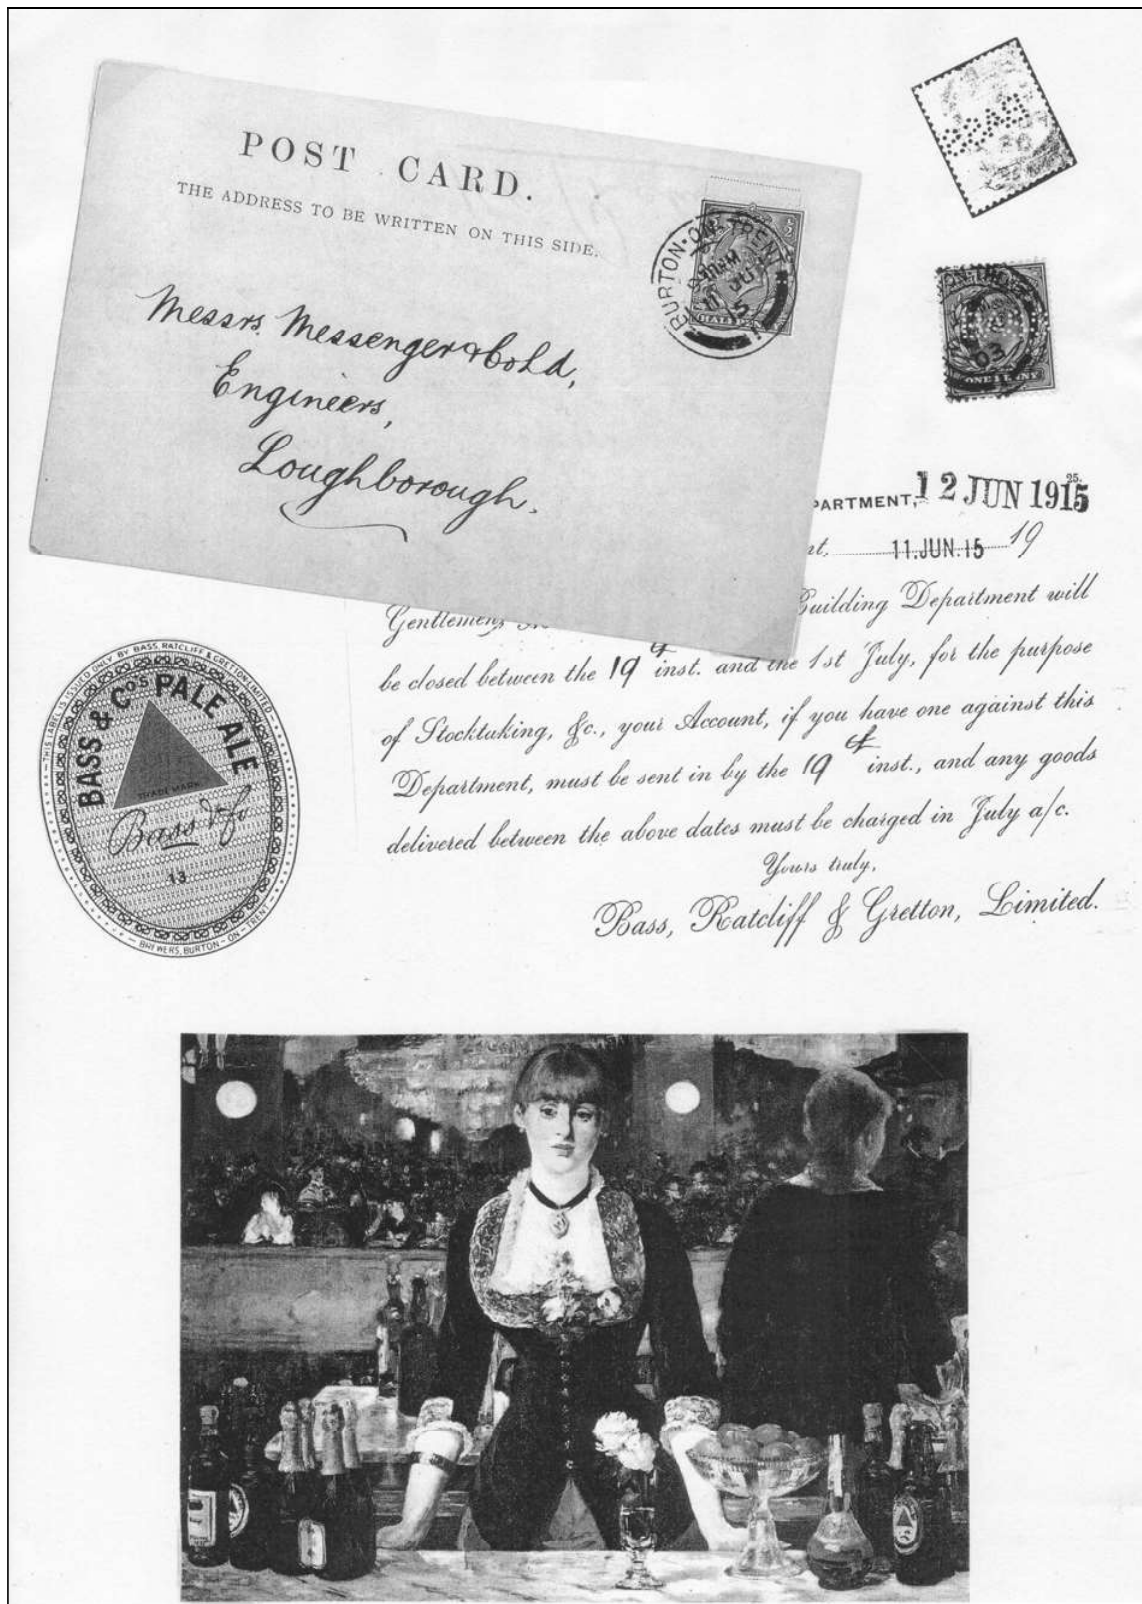 POST CARD.
THE ADDRESS TO BE WRITTEN ON THIS SIDE.
BURTON-ON-TRENT
HALF
Messrs. Messenger & Co Ld,
Engineers,
Loughborough.
03
ONE PENNY
PARTMENT, 12 JUN 1915
nt, 11.JUN.15 19
Gentlemen, Building Department will
be closed between the 19th inst. and the 1st July, for the purpose
of Stocktaking, &c., your Account, if you have one against this
Department, must be sent in by the 19th inst., and any goods
delivered between the above dates must be charged in July a/c.
Yours truly,
Bass, Ratcliff & Gretton, Limited.
THIS LABEL IS ISSUED ONLY BY BASS, RATCLIFF & GRETTON LIMITED
BASS & Co's PALE ALE
TRADE MARK
Bass & Co
13
BREWERS, BURTON-ON-TRENT